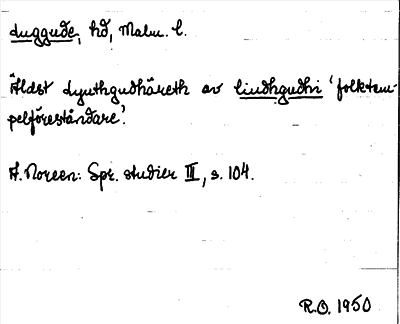 Luggude, hd, Malm. l.
Äldst Lyuthguthhäreth av liudhgudhi 'folktem-
pelföreståndare'.
A. Noreen: Spr. studier III, s. 104.
R.O. 1950